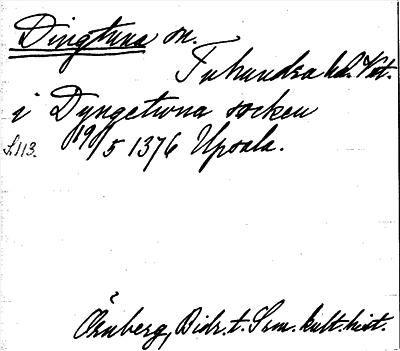 Dingtuna sn.
Tuhundra hd. Vst.
i Dyngetwna socken
S.113. 19/5 1376 Upsala.
Örnberg, Bidr. t. Svm. kult. hist.